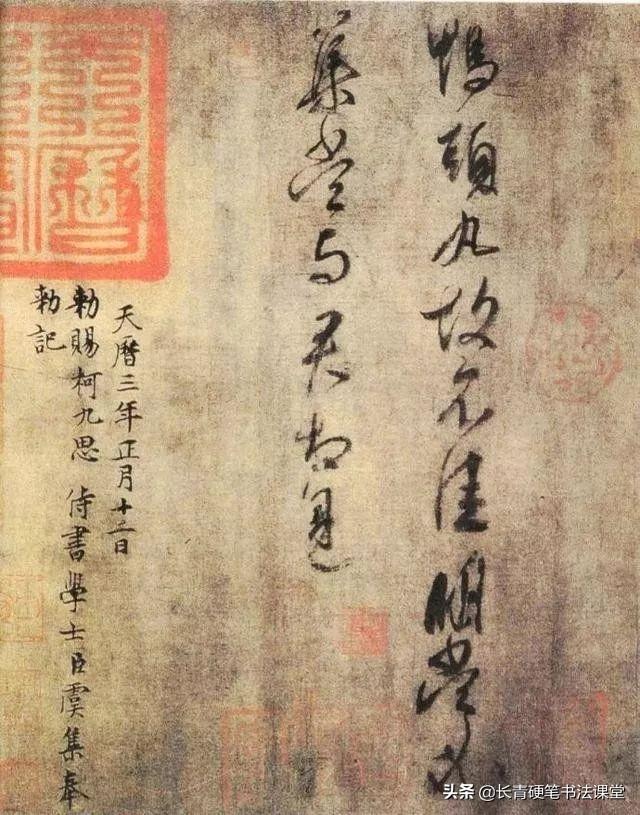 鴨頭丸故不佳明當必
集當与君相見
天曆三年正月十二日
勅賜柯九思 侍書學士臣虞集奉
勅記
头条 @长青硬笔书法课堂